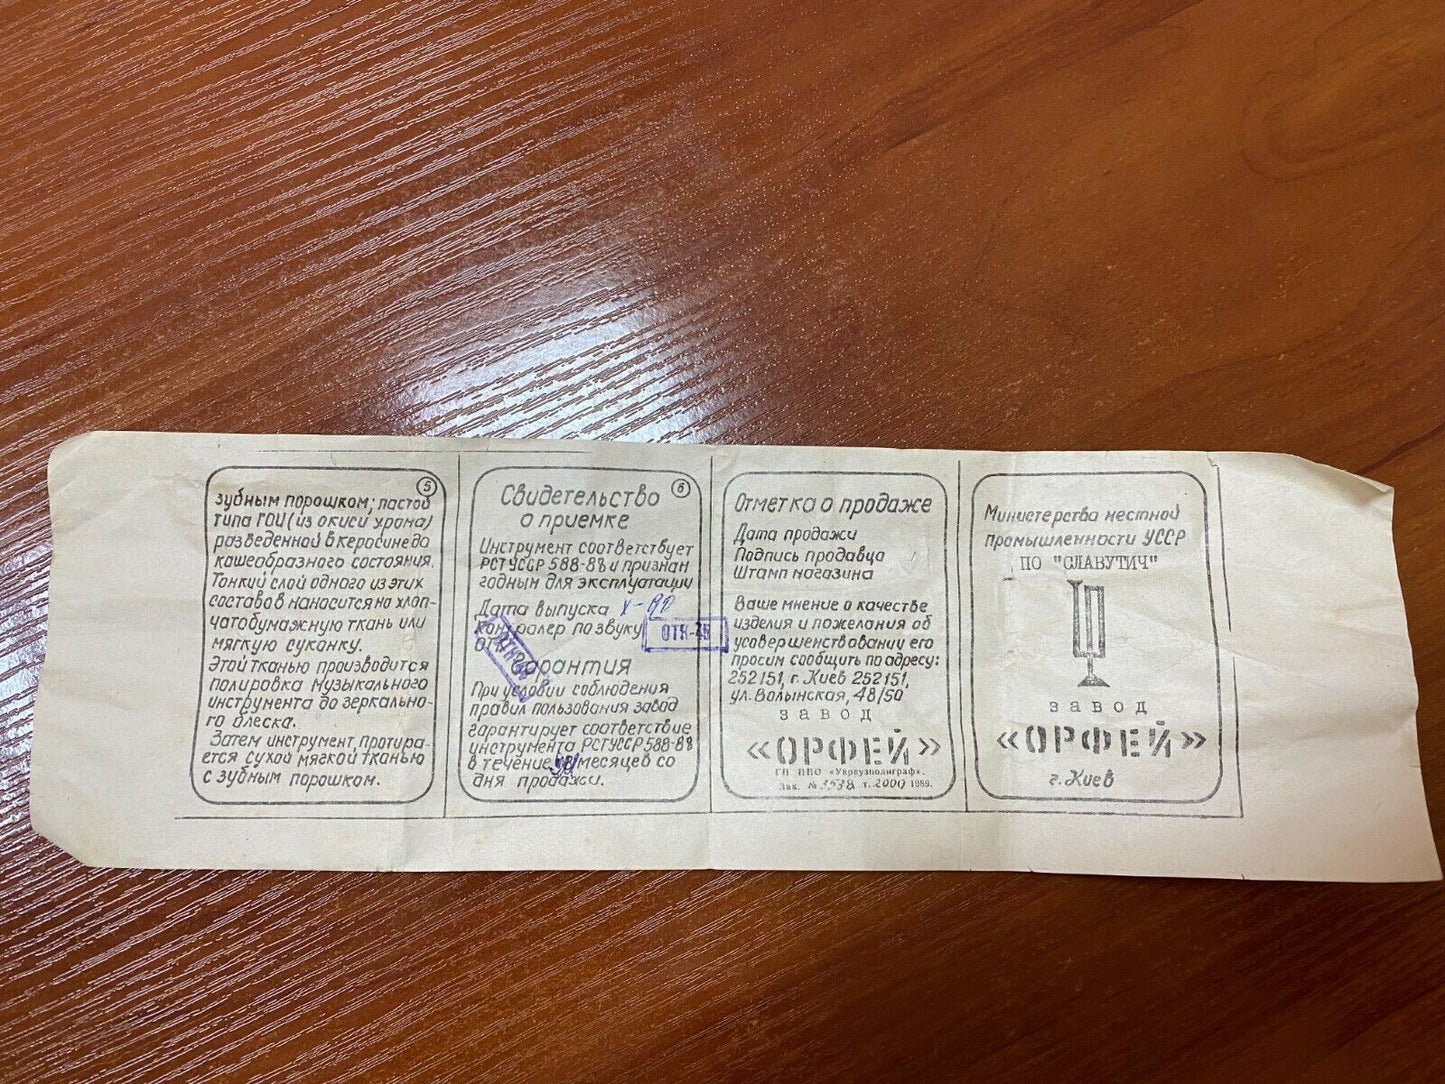 5
зубным порошком; пастой
типа ГОИ (из окиси хрома)
разведенной в керосине до
кашеобразного состояния.
Тонкий слой одного из этих
составов наносится на хлоп-
чатобумажную ткань или
мягкую суконку.
Этой тканью производится
полировка музыкального
инструмента до зеркально-
го блеска.
Затем инструмент, протира-
ется сухой мягкой тканью
с зубным порошком.
6
Свидетельство
о приемке
Инструмент соответствует
РСТУССР 588-88 и признан
годным для эксплуатации
Дата выпуска X-90
Контролер по звуку
ОТК-45
Гарантия
При условии соблюдения
правил пользования завод
гарантирует соответствие
инструмента РСТУССР 588-88
в течение месяцев со
дня продажи.
Отметка о продаже
Дата продажи
Подпись продавца
Штамп магазина
Ваше мнение о качестве
изделия и пожелания об
усовершенствовании его
просим сообщить по адресу:
252151, г. Киев 252151,
ул. Волынская, 48/50
завод
«ОРФЕЙ»
ГП ППО «Укрвузполиграф».
Зак. № 3538 т. 2000 1989.
Министерства местной
промышленности УССР
ПО "СЛАВУТИЧ"
завод
«ОРФЕЙ»
г. Киев